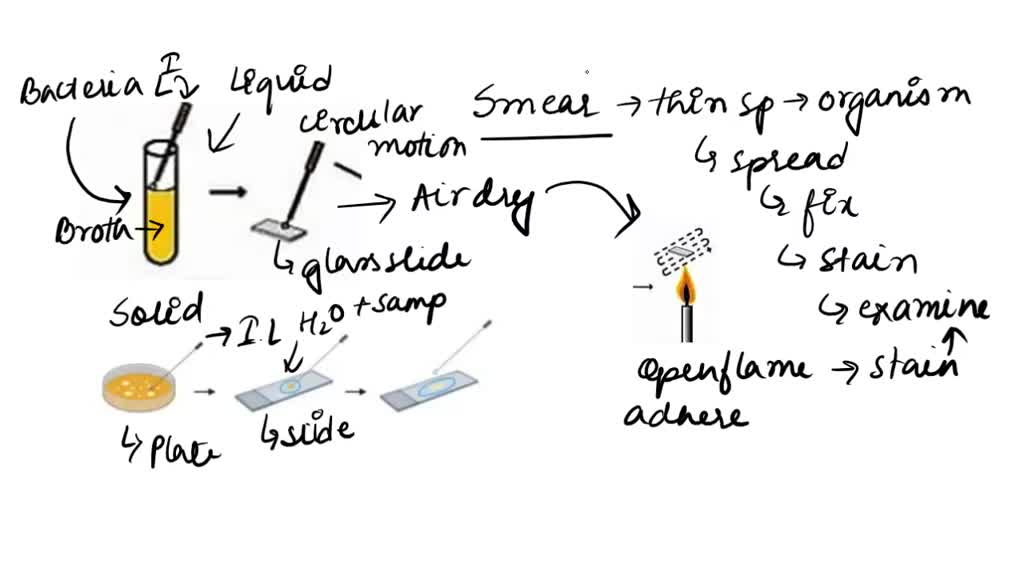 Bacteria I.L
Liquid
Broth
circular
motion
glass slide
Air dry
Smear → thin sp → organism
↳ spread
↳ fix
↳ stain
↳ examine
Openflame → stain
adhere
Solid
→ I.L H₂O + samp
↳ plate
↳ slide